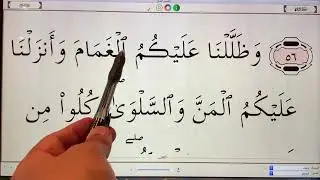 ٥٦ وَظَلَّلْنَا عَلَيْكُمُ ٱلْغَمَامَ وَأَنزَلْنَا
عَلَيْكُمُ ٱلْمَنَّ وَٱلسَّلْوَىٰ ۖ كُلُوا۟ مِن